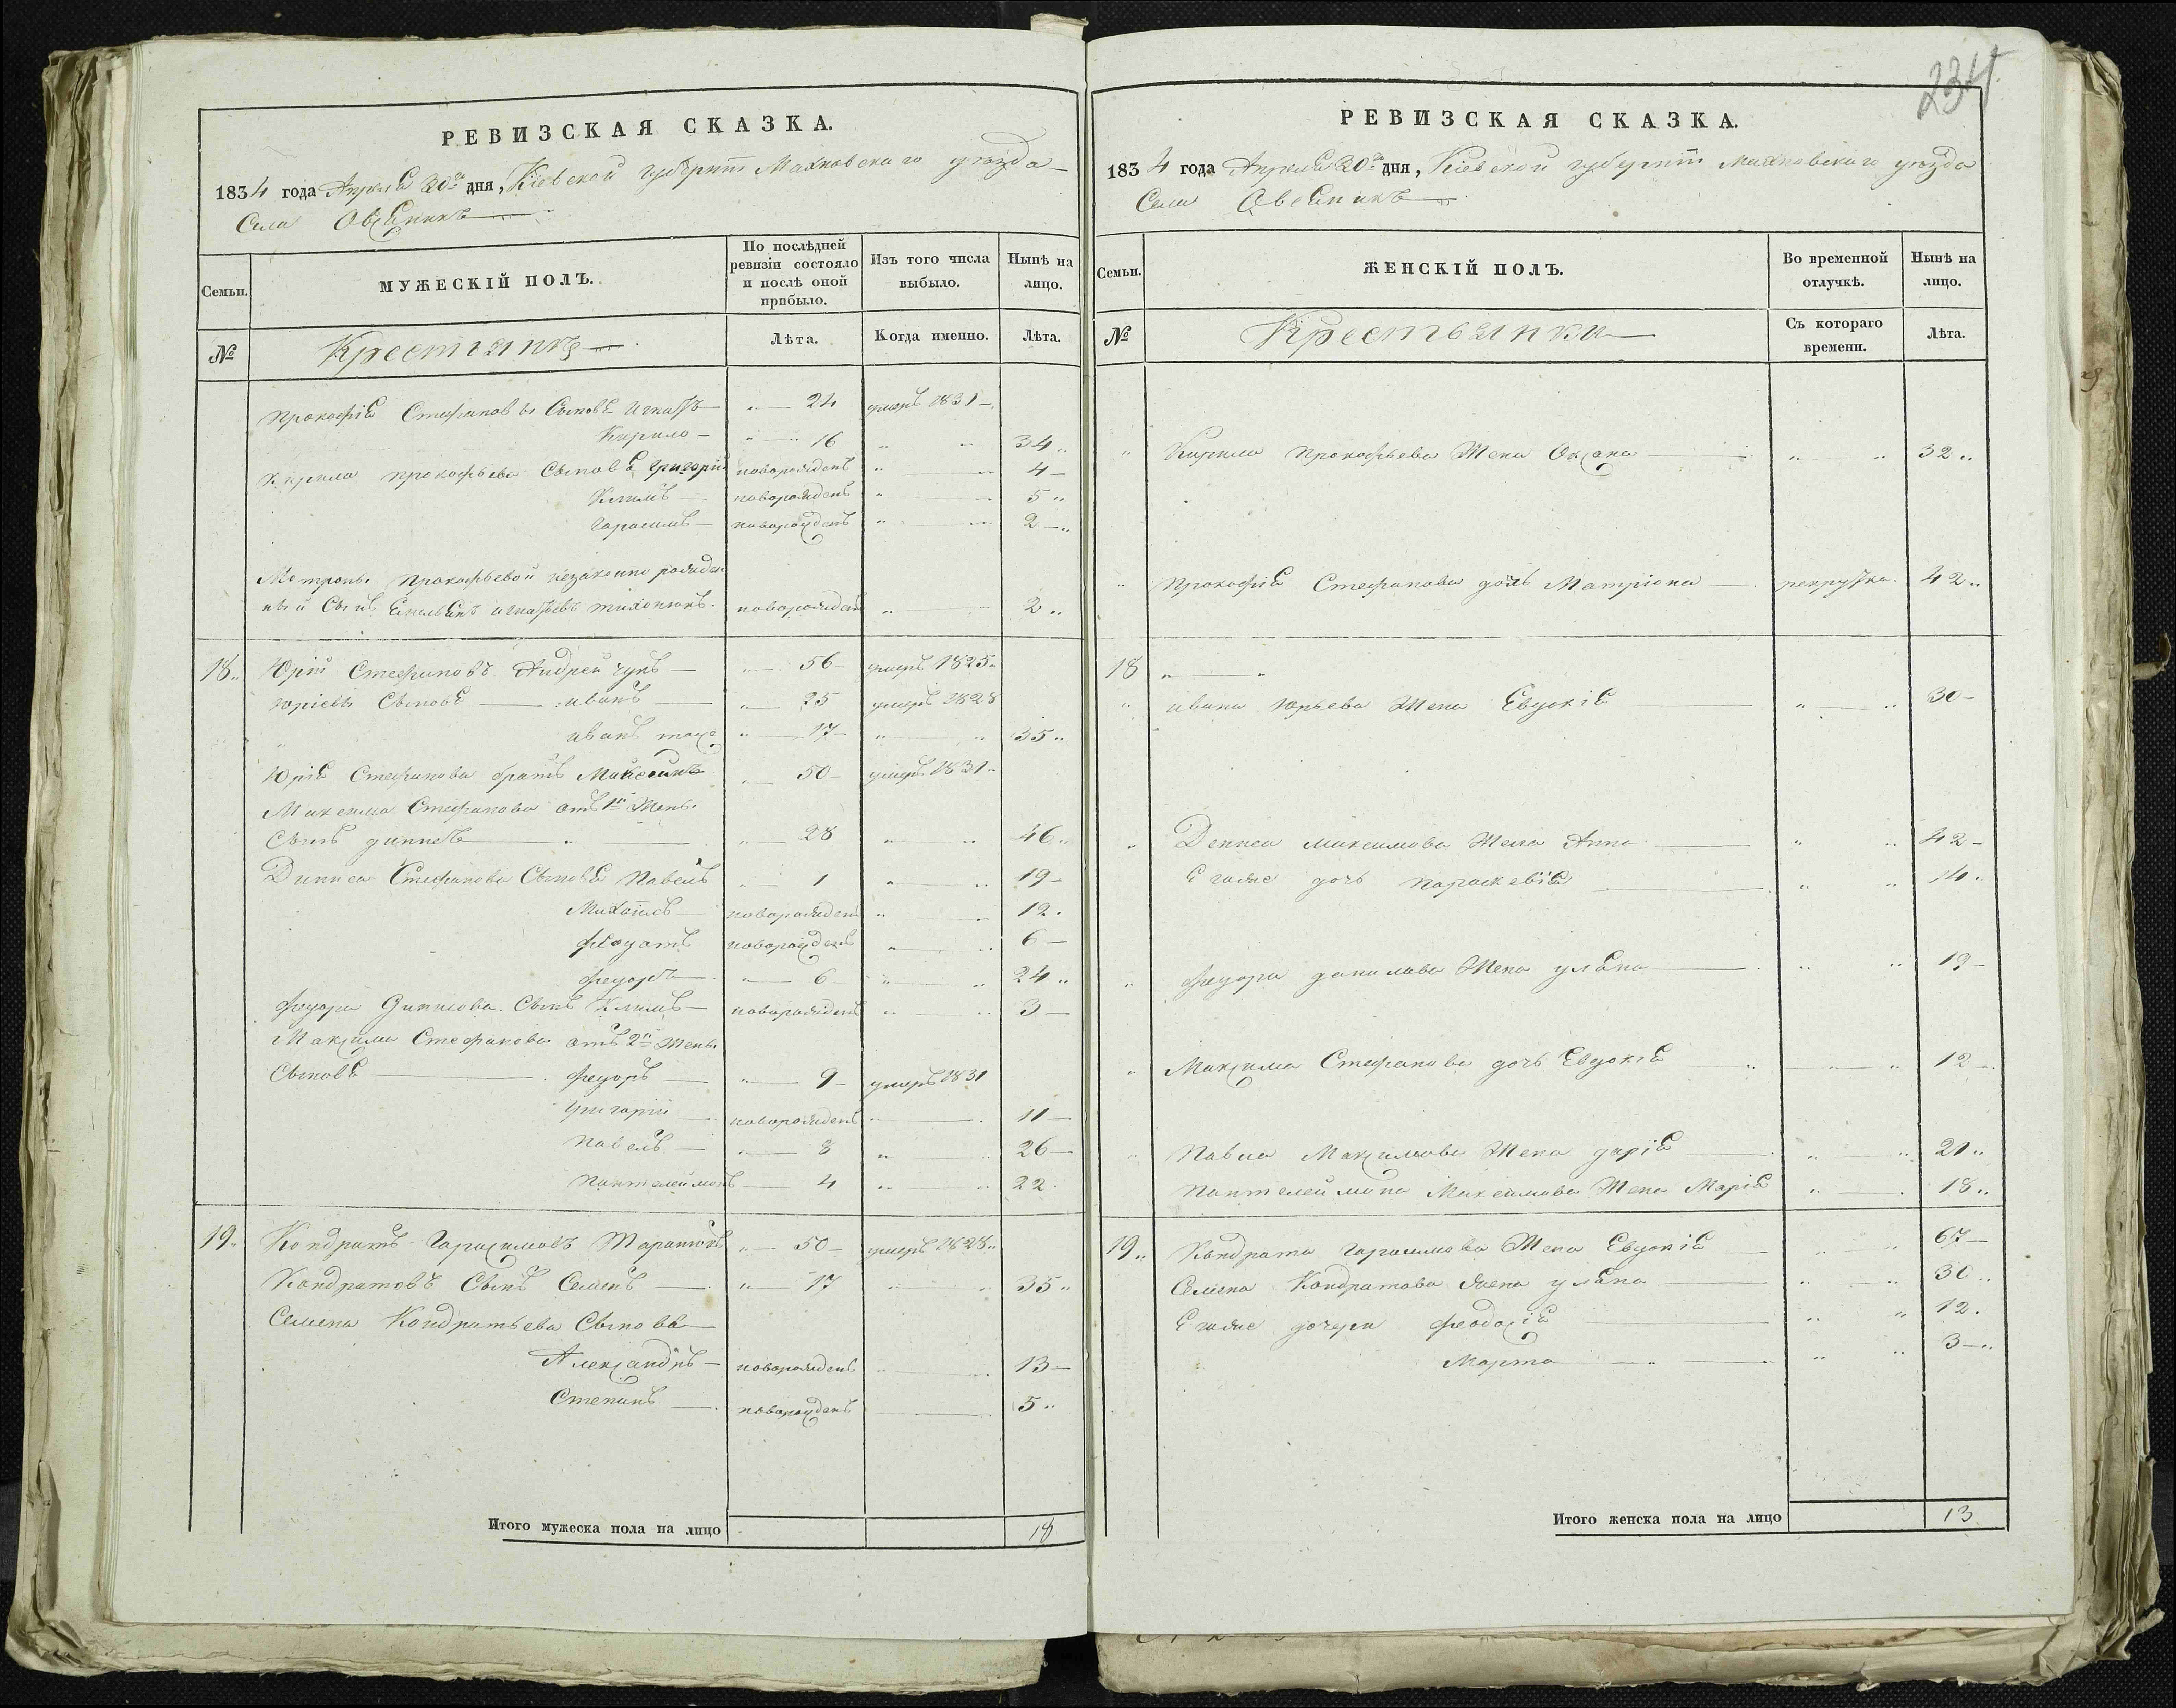 234
РЕВИЗСКАЯ СКАЗКА.
1834 года Апреля 30го дня, Кіевской губерніи Махновскаго уѣзда
Села Овсяникъ
Семьи. МУЖЕСКІЙ ПОЛЪ. По послѣдней ревизіи состояло и послѣ оной прибыло. Изъ того числа выбыло. Нынѣ на лицо.
№ Крестьяне Лѣта. Когда именно. Лѣта.
Прокофія Стефановы Сыновя Игнатъ 24 умеръ 1831
Кирило 16 34
Кирила Прокофьева Сыновя Григорій новорожденъ 4
Климъ новорожденъ 5
Гарасимъ новорожденъ 2
Мотроны Прокофьевой незаконно рожден
ный Сынъ Емельянъ Игнатьевъ новорожденъ 2
18 Юрій Стефановъ Андрейчукъ 56 умеръ 1825
Юріевы Сыновя Иванъ 25 умеръ 1828
Иванъ тоже 17 35
Юрія Стефанова братъ Максимъ 50 умеръ 1831
Максима Стефанова отъ 1й Жены
Сынъ Денисъ 28 46
Дениса Стефанова Сыновя Павелъ 1 19
Михаилъ новорожденъ 12
Федотъ новорожденъ 6
Федоръ 6 24
Федора Данилова Сынъ Климъ новорожденъ 3
Максима Стефанова отъ 2й Жены
Сыновя Федоръ 9 умеръ 1831
Григорій новорожденъ 11
Павелъ 8 26
Пантелеймонъ 4 22
19 Кондратъ Гарасимовъ Таранюкъ 50 умеръ 1828
Кондратовъ Сынъ Семенъ 17 35
Семена Кондратьева Сыновя
Александръ новорожденъ 13
Степанъ новорожденъ 5
Итого мужеска пола на лицо 18
РЕВИЗСКАЯ СКАЗКА.
1834 года Апреля 30го дня, Кіевской губерніи Махновскаго уѣзда
Села Овсяникъ
Семьи. ЖЕНСКІЙ ПОЛЪ. Во временной отлучкѣ. Нынѣ на лицо.
№ Крестьянки Съ котораго времени. Лѣта.
Кирила Прокофьева Жена Оксана 32
Прокофія Стефанова дочь Матріона рекрутка 42
18
Ивана Юрьева Жена Евдокія 30
Дениса Максимова Жена Анна 42
Егоже дочь Параскевія 14
Федора Данилова Жена Уляна 19
Максима Стефанова дочь Евдокія 12
Павла Максимова Жена Дарія 21
Пантелеймона Максимова Жена Марія 18
19 Кондрата Гарасимова Жена Евдокія 67
Семена Кондратова Жена Уляна 30
Егоже дочери Феодосія 12
Марта 3
Итого женска пола на лицо 13